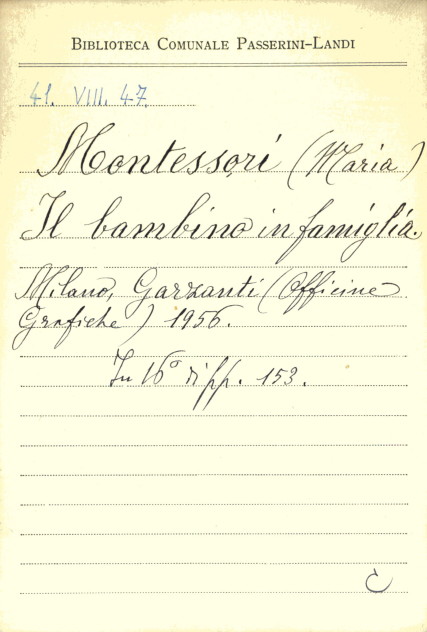 BIBLIOTECA COMUNALE PASSERINI-LANDI
41. VIII. 47.
Montessori (Maria)
Il bambino in famiglia.
Milano, Garzanti (Officine
Grafiche) 1956.
In 16° di pp. 153.
C